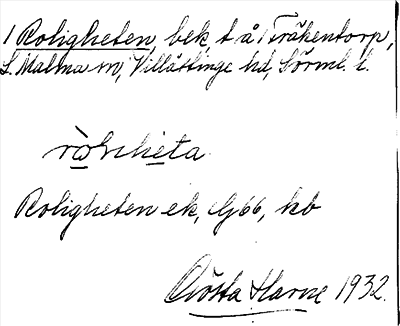 1 Roligheten, bek, t å 1 Fräkentorp,
L. Malma sn, Villåttinge hd, Sörml. l.
Roligheten ek, Gj 66, kb
Gösta Harne 1932.